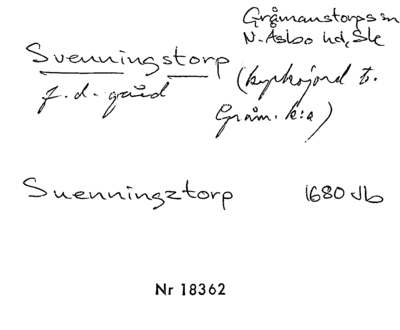 Gråmanstorps sn
N. Åsbo hd, Sk
Svenningstorp
(kyrkojord t.
f.d. gård
Gråm. k:a)
Suenningztorp 1680 Jb
Nr 18362